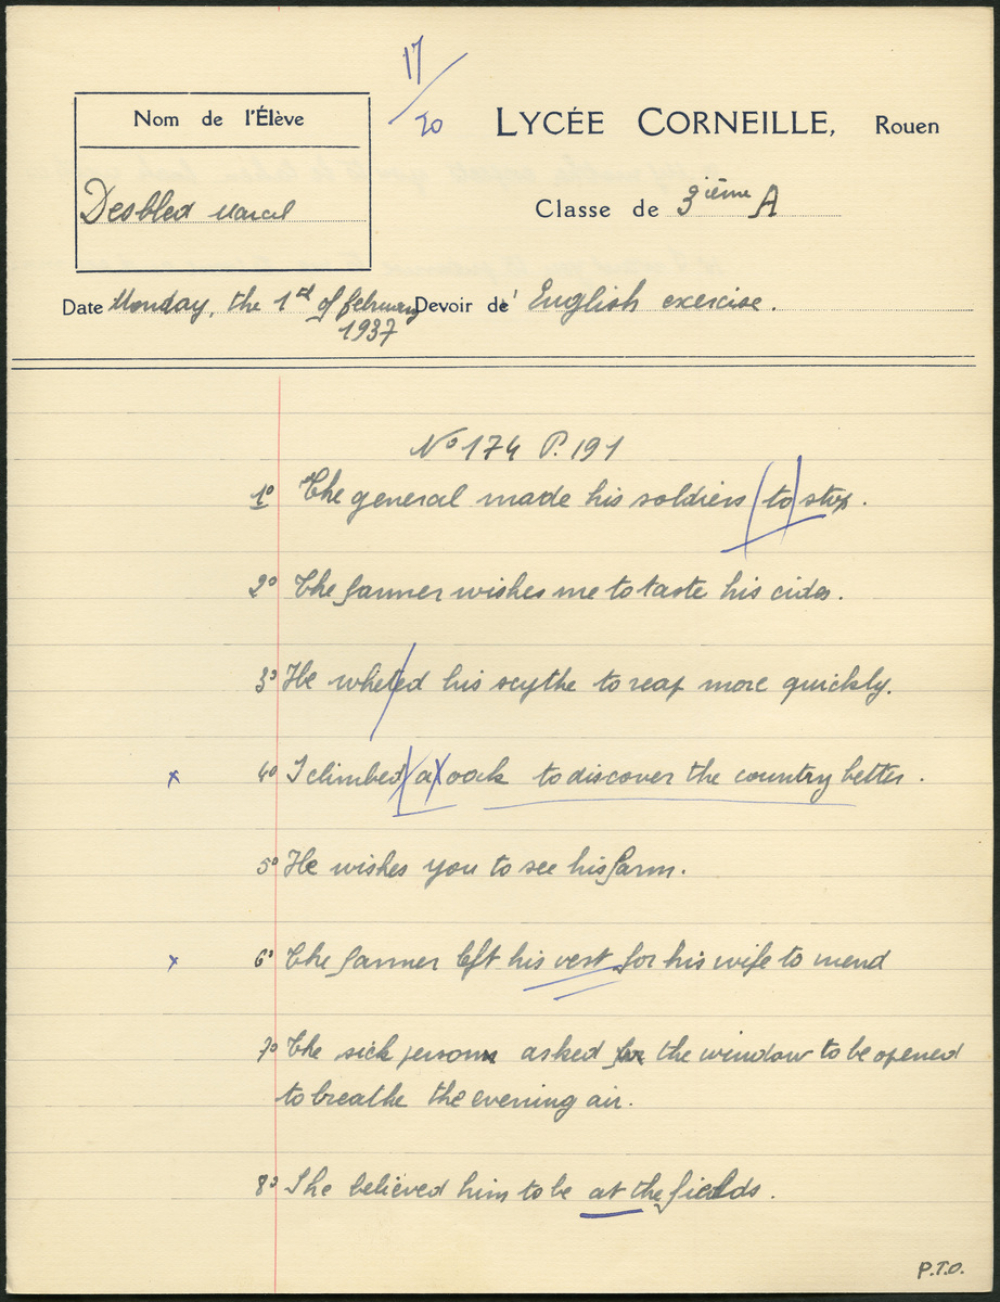 17/20
Nom de l'Élève
LYCÉE CORNEILLE, Rouen
Desbled Marcel
Classe de 3ième A
Date Monday, the 1st of february Devoir de' English exercise.
1937
No 174 P. 191
1o The general made his soldiers (to) stop.
2o The farmer wishes me to taste his cider.
3o He wheted his scythe to reap more quickly.
x 4o I climbed a oack to discover the country better.
5o He wishes you to see his farm.
x 6o The farmer left his vest for his wife to mend
7o The sick person asked for the window to be opened
to breathe the evening air.
8o She believed him to be at the fields.
P.T.O.